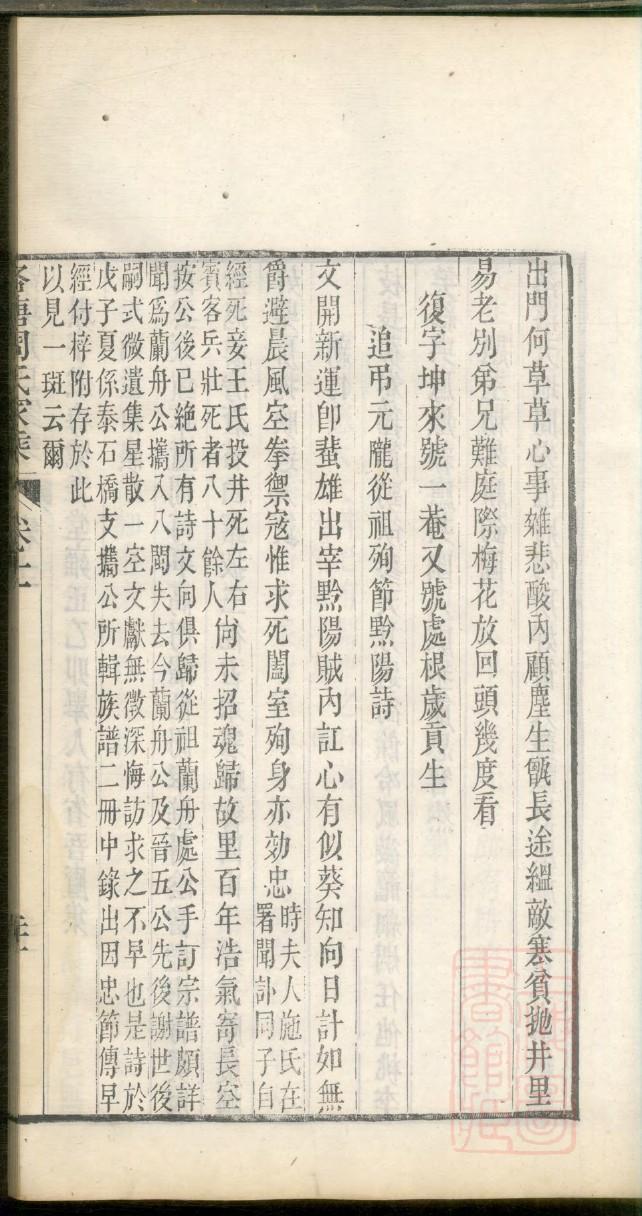 出門何草草心事雜悲酸內顧塵生甑長途縕敵寒貧拋井里
易老別弟兄難庭際梅花放回頭幾度看
復字坤來號一菴又號處根歲貢生
追弔元隴從祖殉節黔陽詩
文開新運卽蜚雄出宰黔陽賊內訌心有似葵知向日計如無
爵避晨風空拳禦寇惟求死闔室殉身亦効忠
時夫人施氏在
署聞訃同子自
經死妾王氏投井死左右
賓客兵壯死者八十餘人
尙未招魂歸故里百年浩氣寄長空
按公後已絶所有詩文向俱歸從祖蘭舟處公手訂宗譜頗詳
聞爲蘭舟公攜入八閩失去今蘭舟公及晉五公先後謝世後
嗣式微遺集星散一空文獻無徵深悔訪求之不早也是詩於
戊子夏係泰石橋支攜公所輯族譜二冊中錄出因忠節傳早
經付梓附存於此
以見一斑云爾
周氏家集 卷十